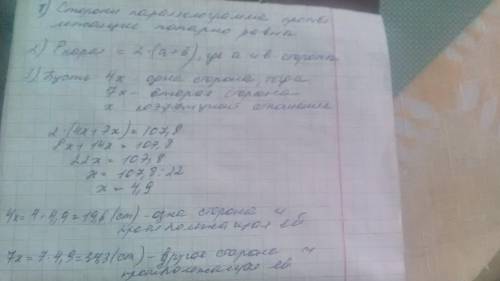 1) Стороны параллелограмма проти
лежащие попарно равны
2) P парал = 2·(a+b), где a и b стороны
3) Пусть 4x - одна сторона, тогда
7x - вторая сторона
x - коэффициент отношения
2·(4x+7x)=107,8
8x+14x=107,8
22x=107,8
x=107,8:22
x=4,9
4x=4·4,9=19,6(cm)-одна сторона и
противолежащая ей
7x=7·4,9=34,3(cm)-другая сторона и
противолежащая ей